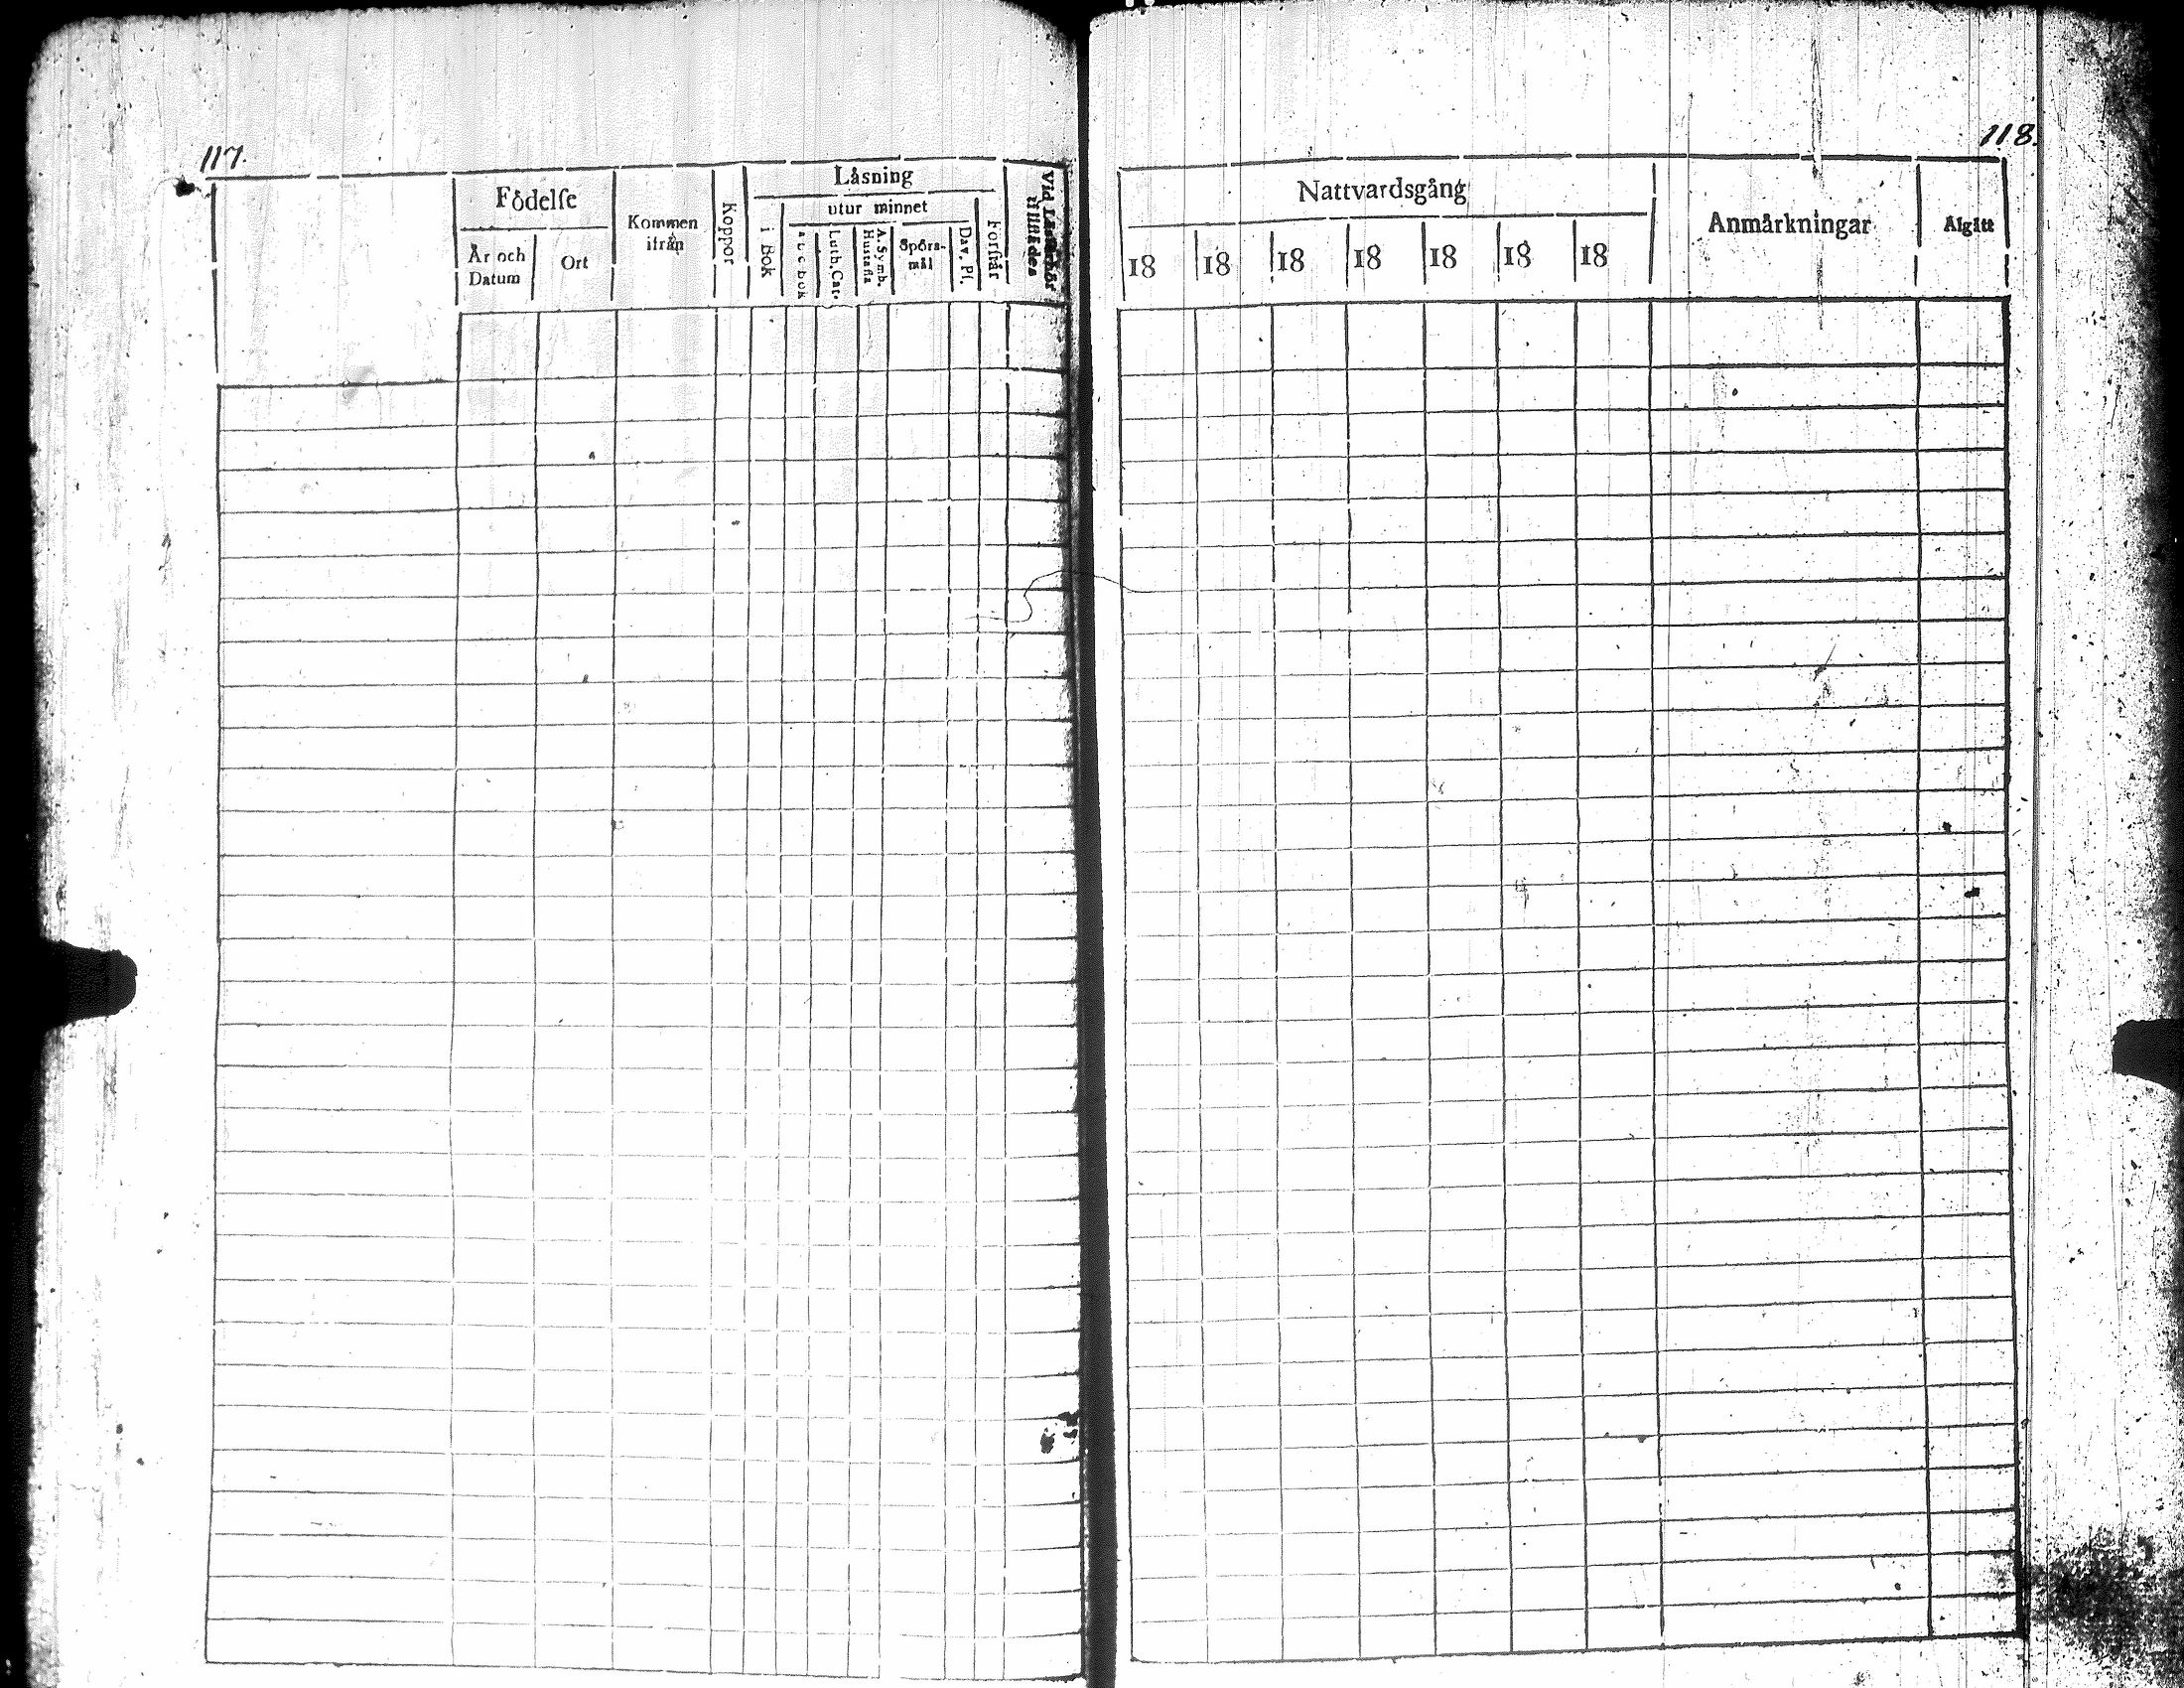 117.
Födelse
År och Datum
Ort
Kommen ifrån
Koppor
Låsning
i Bok
utur minnet
a b c bok
Luth. Cat.
A. Symb. Hustafla
Spörsmål
Dav. Ps.
Förstår
Vid Låsförhör tillstädes
118.
Nattvardsgång
18 18 18 18 18 18 18
Anmårkningar
Afgått